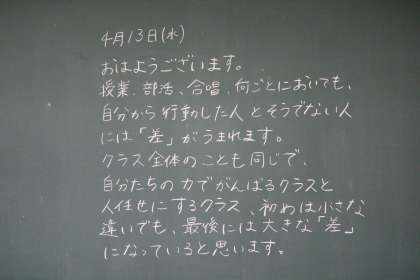 4月13日(水)
おはようございます。
授業、部活、合唱、何ごとにおいても、
自分から行動した人とそうでない人
には「差」がうまれます。
クラス全体のことも同じで、
自分たちの力でがんばるクラスと
人任せにするクラス、初めは小さな
違いでも、最後には大きな「差」
になっていると思います。